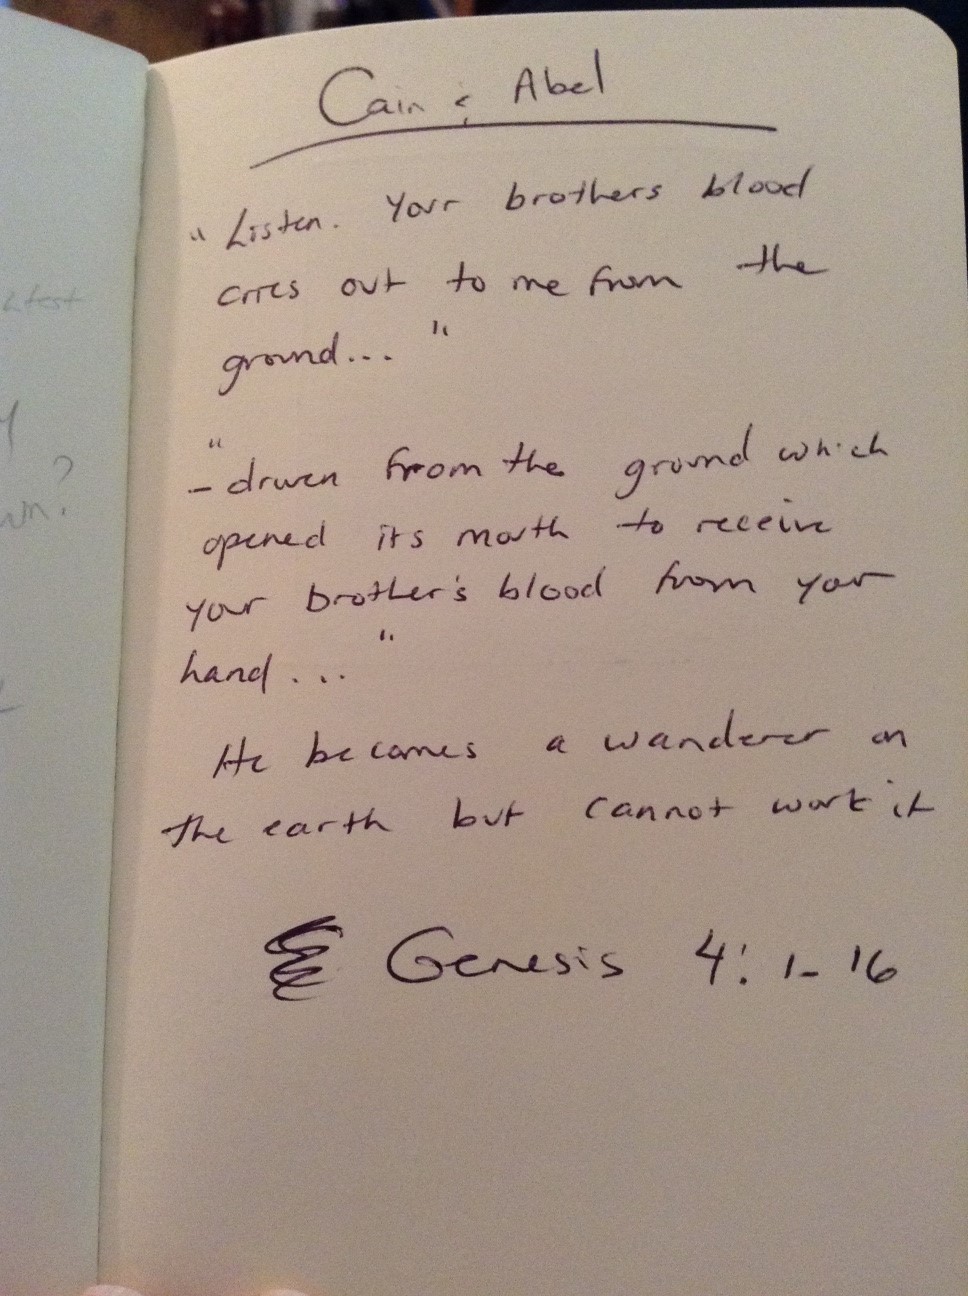 Cain & Abel
"Listen. Your brothers blood
cries out to me from the
ground..."
"
- driven from the ground which
opened its mouth to receive
your brother's blood from your
hand..."
He becomes a wanderer on
the earth but cannot work it
Genesis 4:1-16